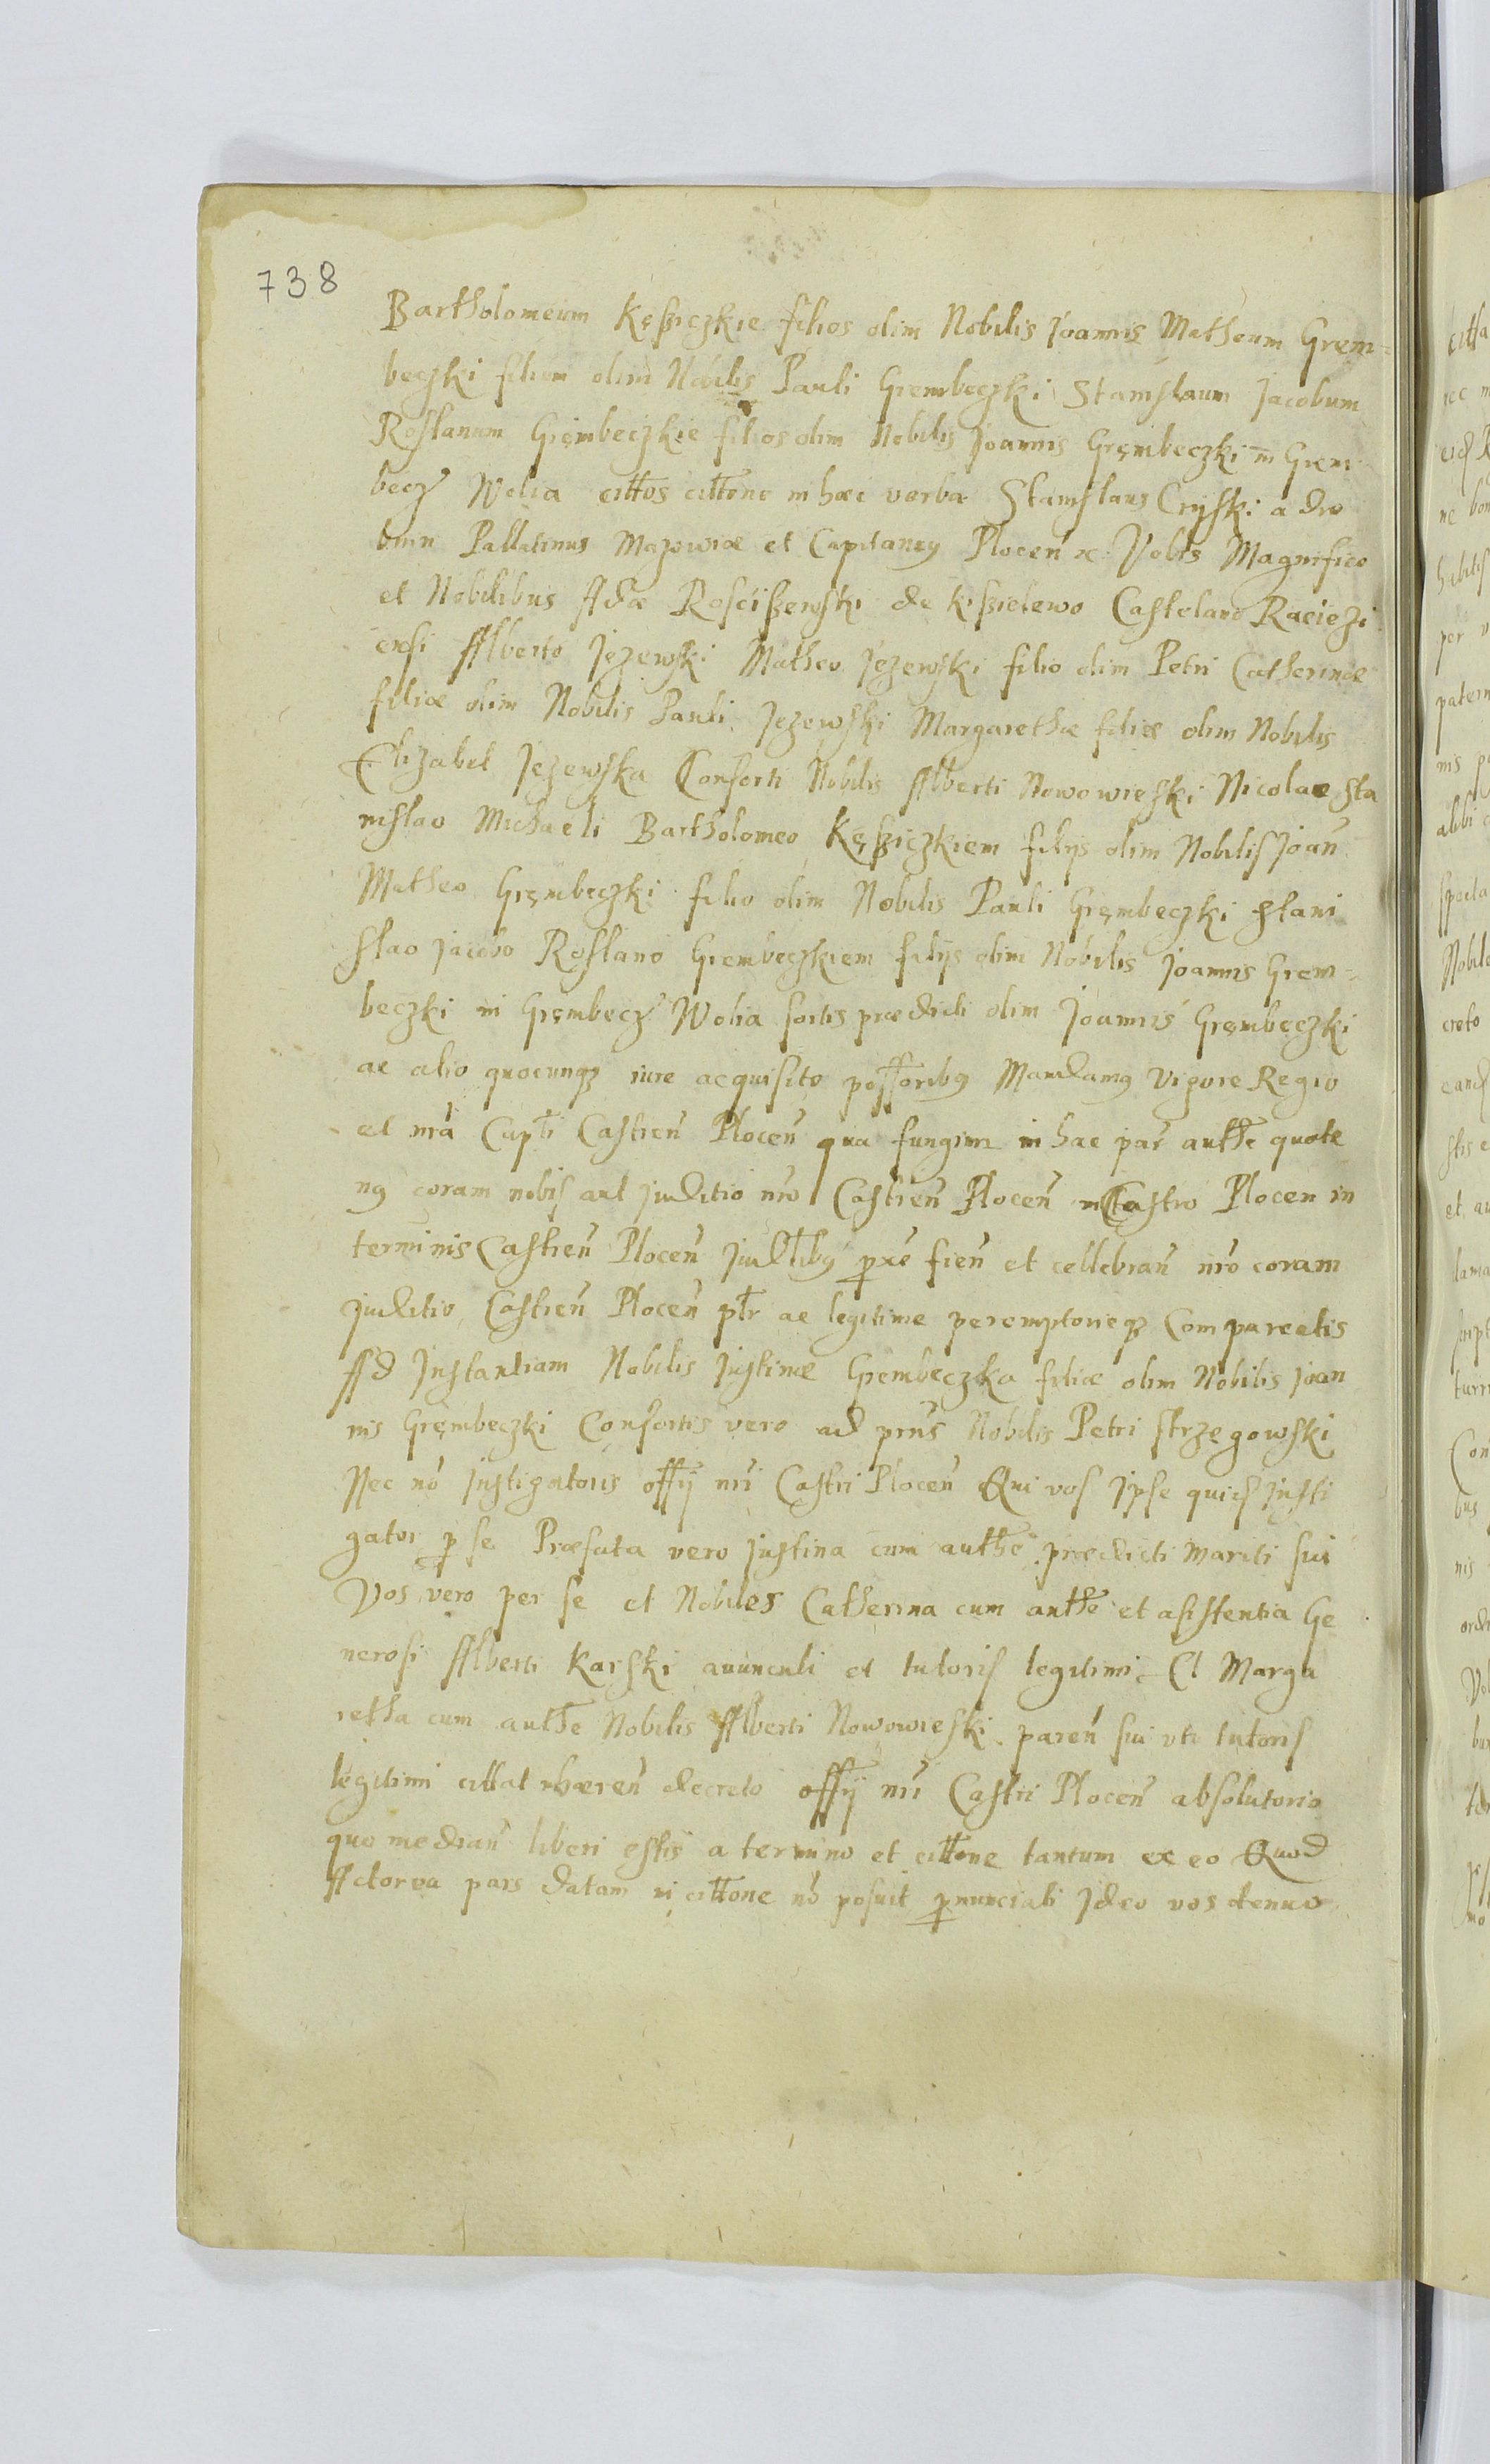 738
Bartholomeum Kęsziczkie filios olim Nobilis Joannis Matheum Grem-
beczki filium olim Naulis Pauli Grembeczki Stanislaum Jacobum
Roslanum Grębeczkie filios olim Nobilis Joannis Gręmbeczki in Grem
becz Wolia cittos cittone in hæc verba Stanislaus Cryski a dro
bnin Pallatinus Mazowiæ et Capitaneus Plocen̄ &c Vobis Magnifico
et Nobilibus Adæ Rosciszewski de kiszielewo Castelano Raciezi
ensi Alberto Jezewski Matheo Jezewski filio olim Petri Catherinæ
filiæ olim Nobilis Pauli Jezewski Margarethæ filiæ olim Nobilis
Elizabet Jezewska Consorti Nobilis Alberti Nowowieski Nicolao Sta
nislao Michaeli Bartholomeo Kęsziczkiem filijs olim Nobilis Joan̄
Matheo Gręmbeczki filio olim Nobilis Pauli Gręmbeczki Stani
slao Jacobo Roslano Grembeczkiem filijs olim Nobilis Joannis Grem-
beczki in Gręmbecz Wolia sortis prædicti olim Joannis Gręmbeczki
ac alio quocunq3 iure acquisito possoribus Mandamus Vigore Regio
et nrā Capti Castren̄ Plocen̄ qua fungimr in hac par̄ autthe quate
nus coram nobis aut juditio nrō Castren̄ Plocen̄ in Castro Plocen in
terminis Castren̄ Plocen̄ Judtibus pxē fien̄ et cellebran̄ nrō coram
juditio Castren̄ Plocen̄ ptr ac legitime peremptorieq3 Compareatis
Ad Instantiam Nobilis Justinæ Grembeczka filiæ olim Nobilis Joan
nis Gręmbeczki Consortis vero ad prn̄s Nobilis Petri strzęgowski
Nec nō Instigatoris offij nrī Castri Plocen̄ Qui vos Ipse quid Insti
gator p se Præfata vero Justina cum autthe prædicti Mariti sui
Vos vero per se et Nobiles Catherina cum autthe et assistentia Ge
nerosi Alberti Karski avunculi et tutoris legitimi Et Marga
retha cum autthe Nobilis Alberti Nowowieski paren̄ sui uti tutoris
legitimi cittat inhæren̄ decreto offij nrī Castri Plocen̄ absolutorio
quo median̄ liberi estis a termino et cittone tantum ex eo Quod
Actorea pars datam in cittone nō posuit pnunciati Ideo vos denuo